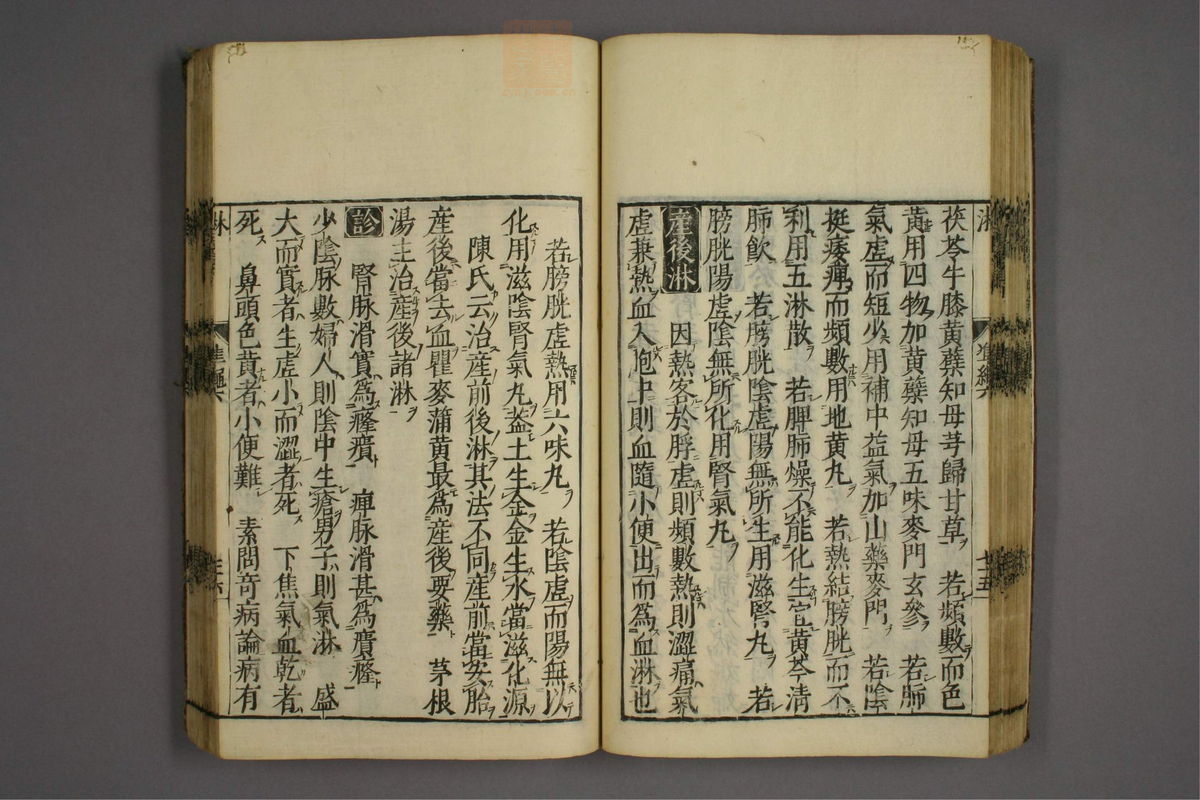 茯苓牛膝黄蘗知母芎歸甘草　若頻數而色
黄用四物加黄蘗知母五味麥門玄參　若肺
氣虚而短少用補中益氣加山藥麥門　若陰
挺痿痺而頻數用地黄丸　若熱結膀胱而不
利用五淋散　若脾肺燥不能化生宜黄芩清
肺飲　若膀胱陰虚陽無所生用滋腎丸　若
膀胱陽虚陰無所化用腎氣丸
產後淋　因熱客於脬虚則頻數熱則澀痛氣
虚兼熱血入胞中則血隨小便出而爲血淋也
若膀胱虚熱用六味丸　若陰虚而陽無以
化用滋陰腎氣丸蓋土生金金生水當滋化源
陳氏云治產前後淋其法不同產前當安胎
產後當去血瞿麥蒲黄最爲產後要藥　茅根
湯主治產後諸淋
診　腎脉滑實爲癃㿗　痺脉滑甚爲㿗癃
少陰脉數婦人則陰中生瘡男子則氣淋　盛
大而實者生虚小而澀者死　下焦氣血乾者
死　鼻頭色黄者小便難　素問奇病論病有
淋
準繩六
廿五
淋
準繩六
廿六